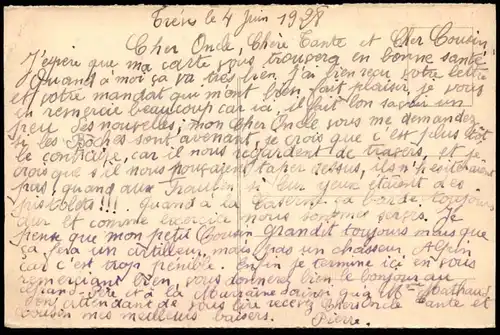 Trèves le 4 Juin 1928
Cher Oncle, Chère Tante et Cher Cousin,
J'espère que ma carte vous trouvera en bonne santé
Quand à moi ça va très bien. J'ai bien reçu votre lettre
et votre mandat qui m'ont bien fait plaisir, je vous
en remercie beaucoup car ici, il fait bon savoir un
peu des nouvelles; mon Cher Oncle vous me demandez
si les Boches sont avenant, je crois que c'est plus tôt
le contraire, car il nous regardent de travers, et je
crois que s'il nous pouvaient taper dessus, ils n'hésiteraient
pas, quand aux Fraulen si leur yeux étaient des
pistolets!!! quand à la caserne ça barde toujours
dur et comme exercice nous sommes servis. Je
pense que mon petit Cousin grandit toujours mais que
ça fera un artilleur, mais pas un chasseur Alpin
car c'est trop pénible. Enfin je termine ici en vous
remerciant bien, vous donnerez bien le bonjour au
Grand Père et à la ainsi qu'à Mme Mathaud
En attendant de vous lire recevez Cher Oncle Tante et
Cousin mes meilleurs baisers. Pierre.